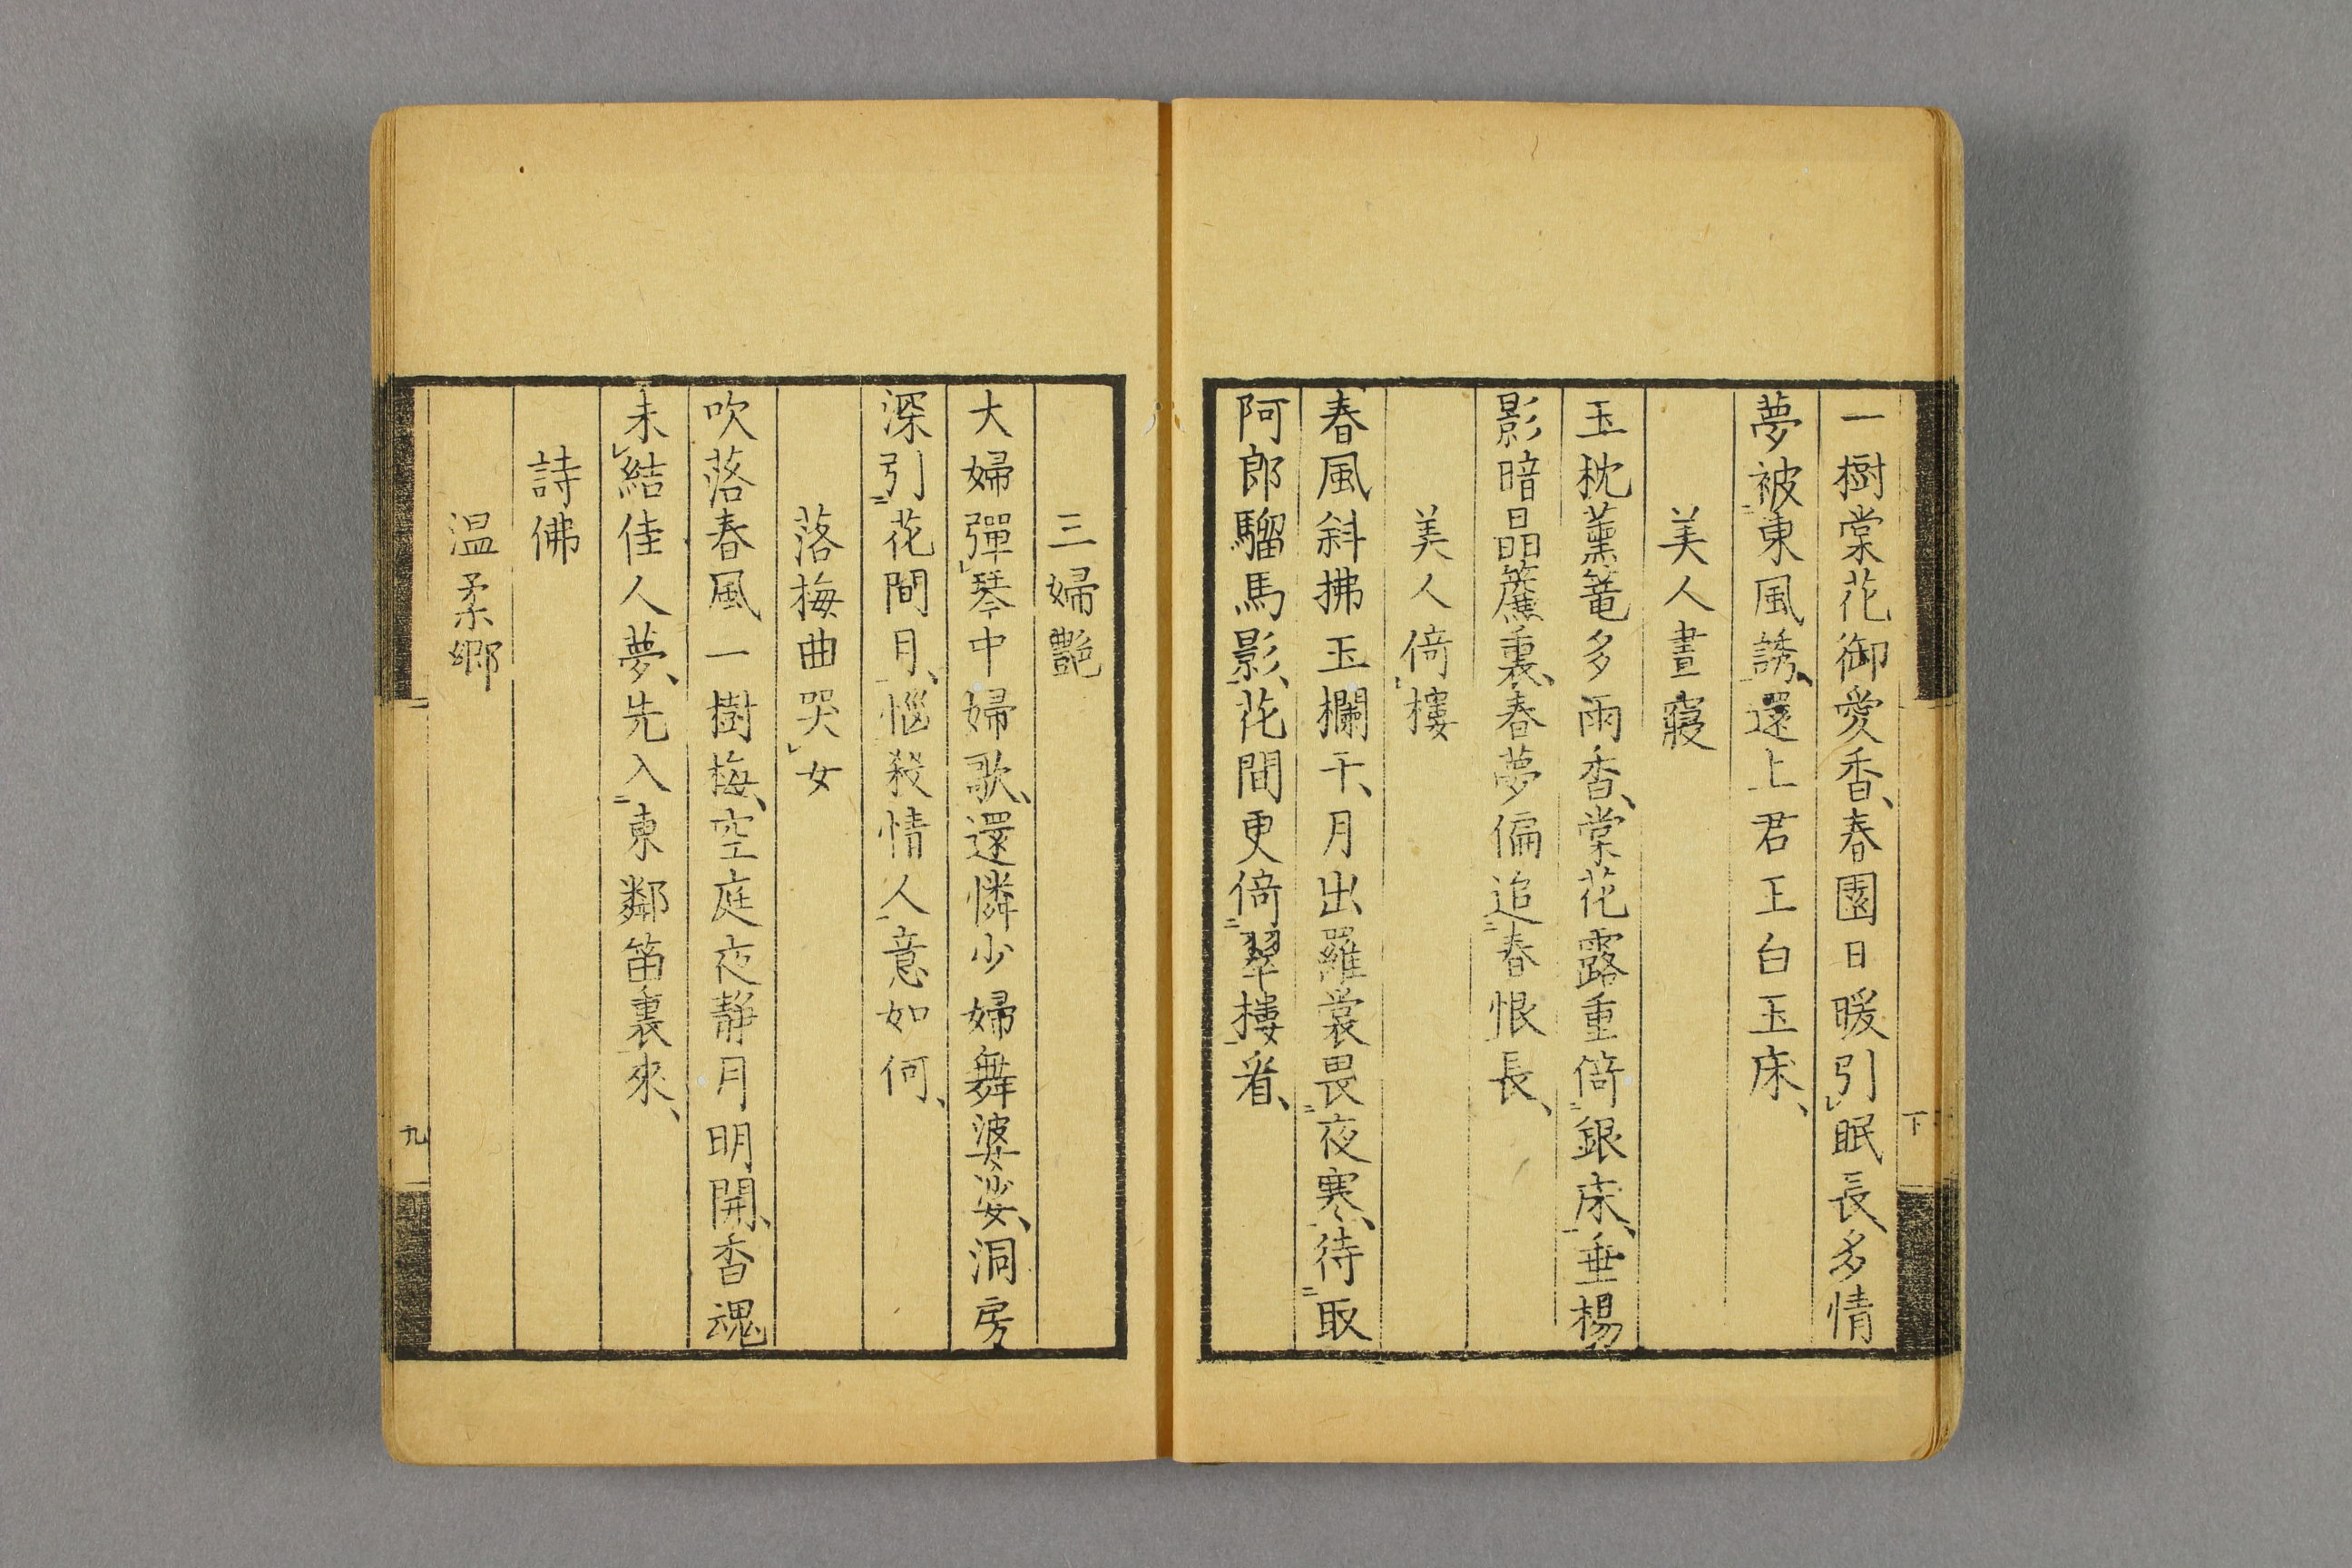 一樹棠花御愛香、春園日暖引眠長、多情
夢被東風誘、還上君王白玉床、
美人晝寢
玉枕薰篭多雨香、棠花露重倚銀床、垂楊
影暗晶簾裏、春夢偏追春恨長、
美人倚樓
春風斜拂玉欄干、月出羅裳畏夜寒、待取
阿郎騮馬影、花間更倚翠樓看、
下
三婦艷
大婦彈琴中婦歌、還憐少婦舞婆娑、洞房
深引花間月、惱殺情人意如何、
落梅曲哭女
吹落春風一樹梅、空庭夜靜月明開、香魂
未結佳人夢、先入東鄰笛裏來、
詩佛
温柔鄉
九